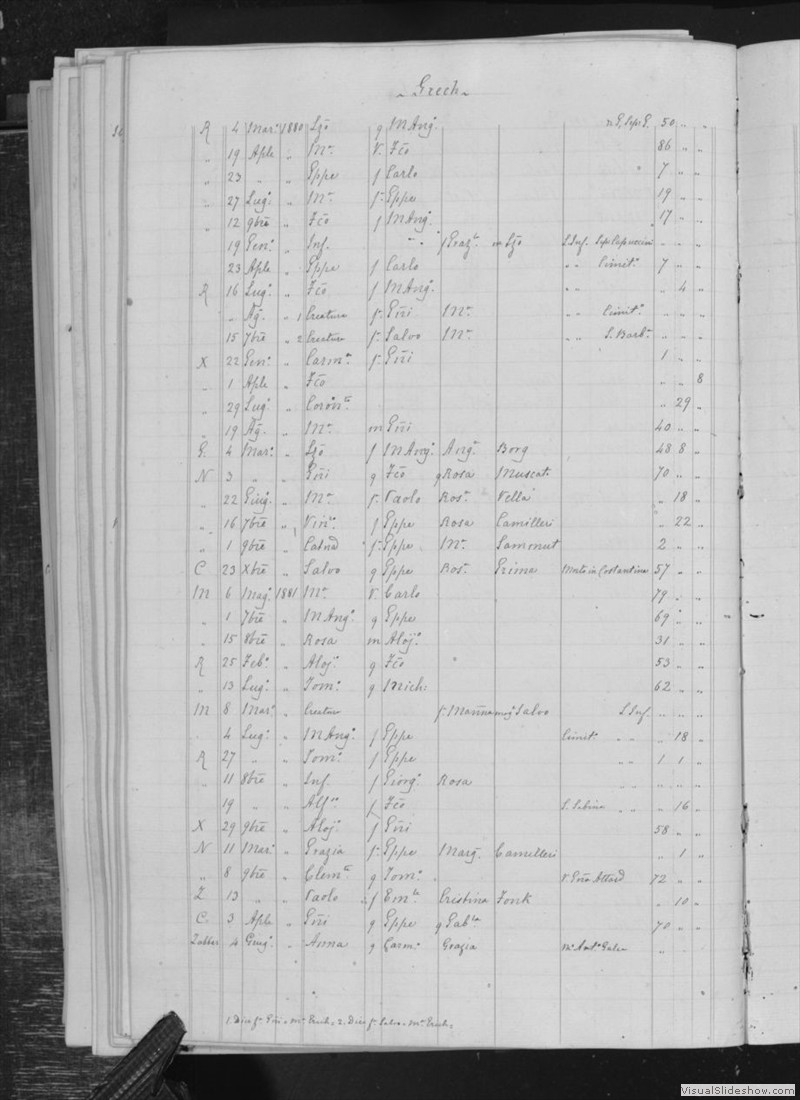 Grech
R 4 Mar: 1880 Lzo g MAng: 50 " "
" 19 Aple " Ma V. Fco 86 " "
" 23 " " Gppe f Carlo 7 " "
" 27 Lug: " Ma f. Gppe 19 " "
" 12 9bre " Fco f MAng: 17 " "
19 Gen: " Inf. f Graz: m Lzo S.Inf. " " "
23 Aple " Gppe f Carlo " " Cimit: 7 " "
R 16 Lug: " Fco f MAng: " " " 4 "
" Ag. " 1 Creatura f. Gni Ma " " Cimit: " " "
15 7bre " 2 Creatura f. Salvo Ma " " S. Barb: " " "
X 22 Gen: " Carma f. Gni 1 " "
" 1 Aple " Fco " " 8
" 29 Lug: " " 29 "
" 19 Ag. " Ma m Gni 40 " "
G. 4 Mar: " Lzo f MAng: Ang: Borg 48 8 "
N 3 " " Gni g Fco g Rosa Muscat 70 " "
" 22 Giug: " Ma f. Paolo Rosa Vella " 18 "
" 16 7bre " Vin: f Gppe Rosa Camilleri " 22 "
" 1 9bre " f. Gppe Ma Sammut 2 " "
C 23 Xbre " Salvo g Gppe Rosa Grima Morto in Costantina 57 " "
M 6 Mag: 1881 Ma V. Carlo 79 " "
" 1 7bre " MAng: g Gppe 69 " "
" 15 8bre " Rosa m Aloj: 31 " "
R 25 Feb: " Aloj: g Fco 53 " "
" 13 Lug: " Tom: g Mich: 62 " "
M 8 Mar: " Creatura Salvo S. Inf. " " "
4 Lug: " MAng: f Gppe Cimit: " " " 18 "
R 27 " " Tom: f Gppe " " 1 1 "
" 11 8bre " Inf. f Giorg: Rosa " " " " "
19 " " Alf: f Fco S. Sabina " " " 16 "
X 29 9bre " Aloj: f Gni 58 " "
N 11 Mar: " Grazia f. Gppe Marg: Camilleri " 1 "
" 8 9bre " Clem: g Tom: V. Attard 72 " "
Z 13 " " Paolo f Em: Cristina Fonk " 10 "
C. 3 Aple " Gni g Gppe g Gab: 70 " "
Zabbar 4 Giug: " Anna g Carm: Grazia " "
VisualSlideshow.com